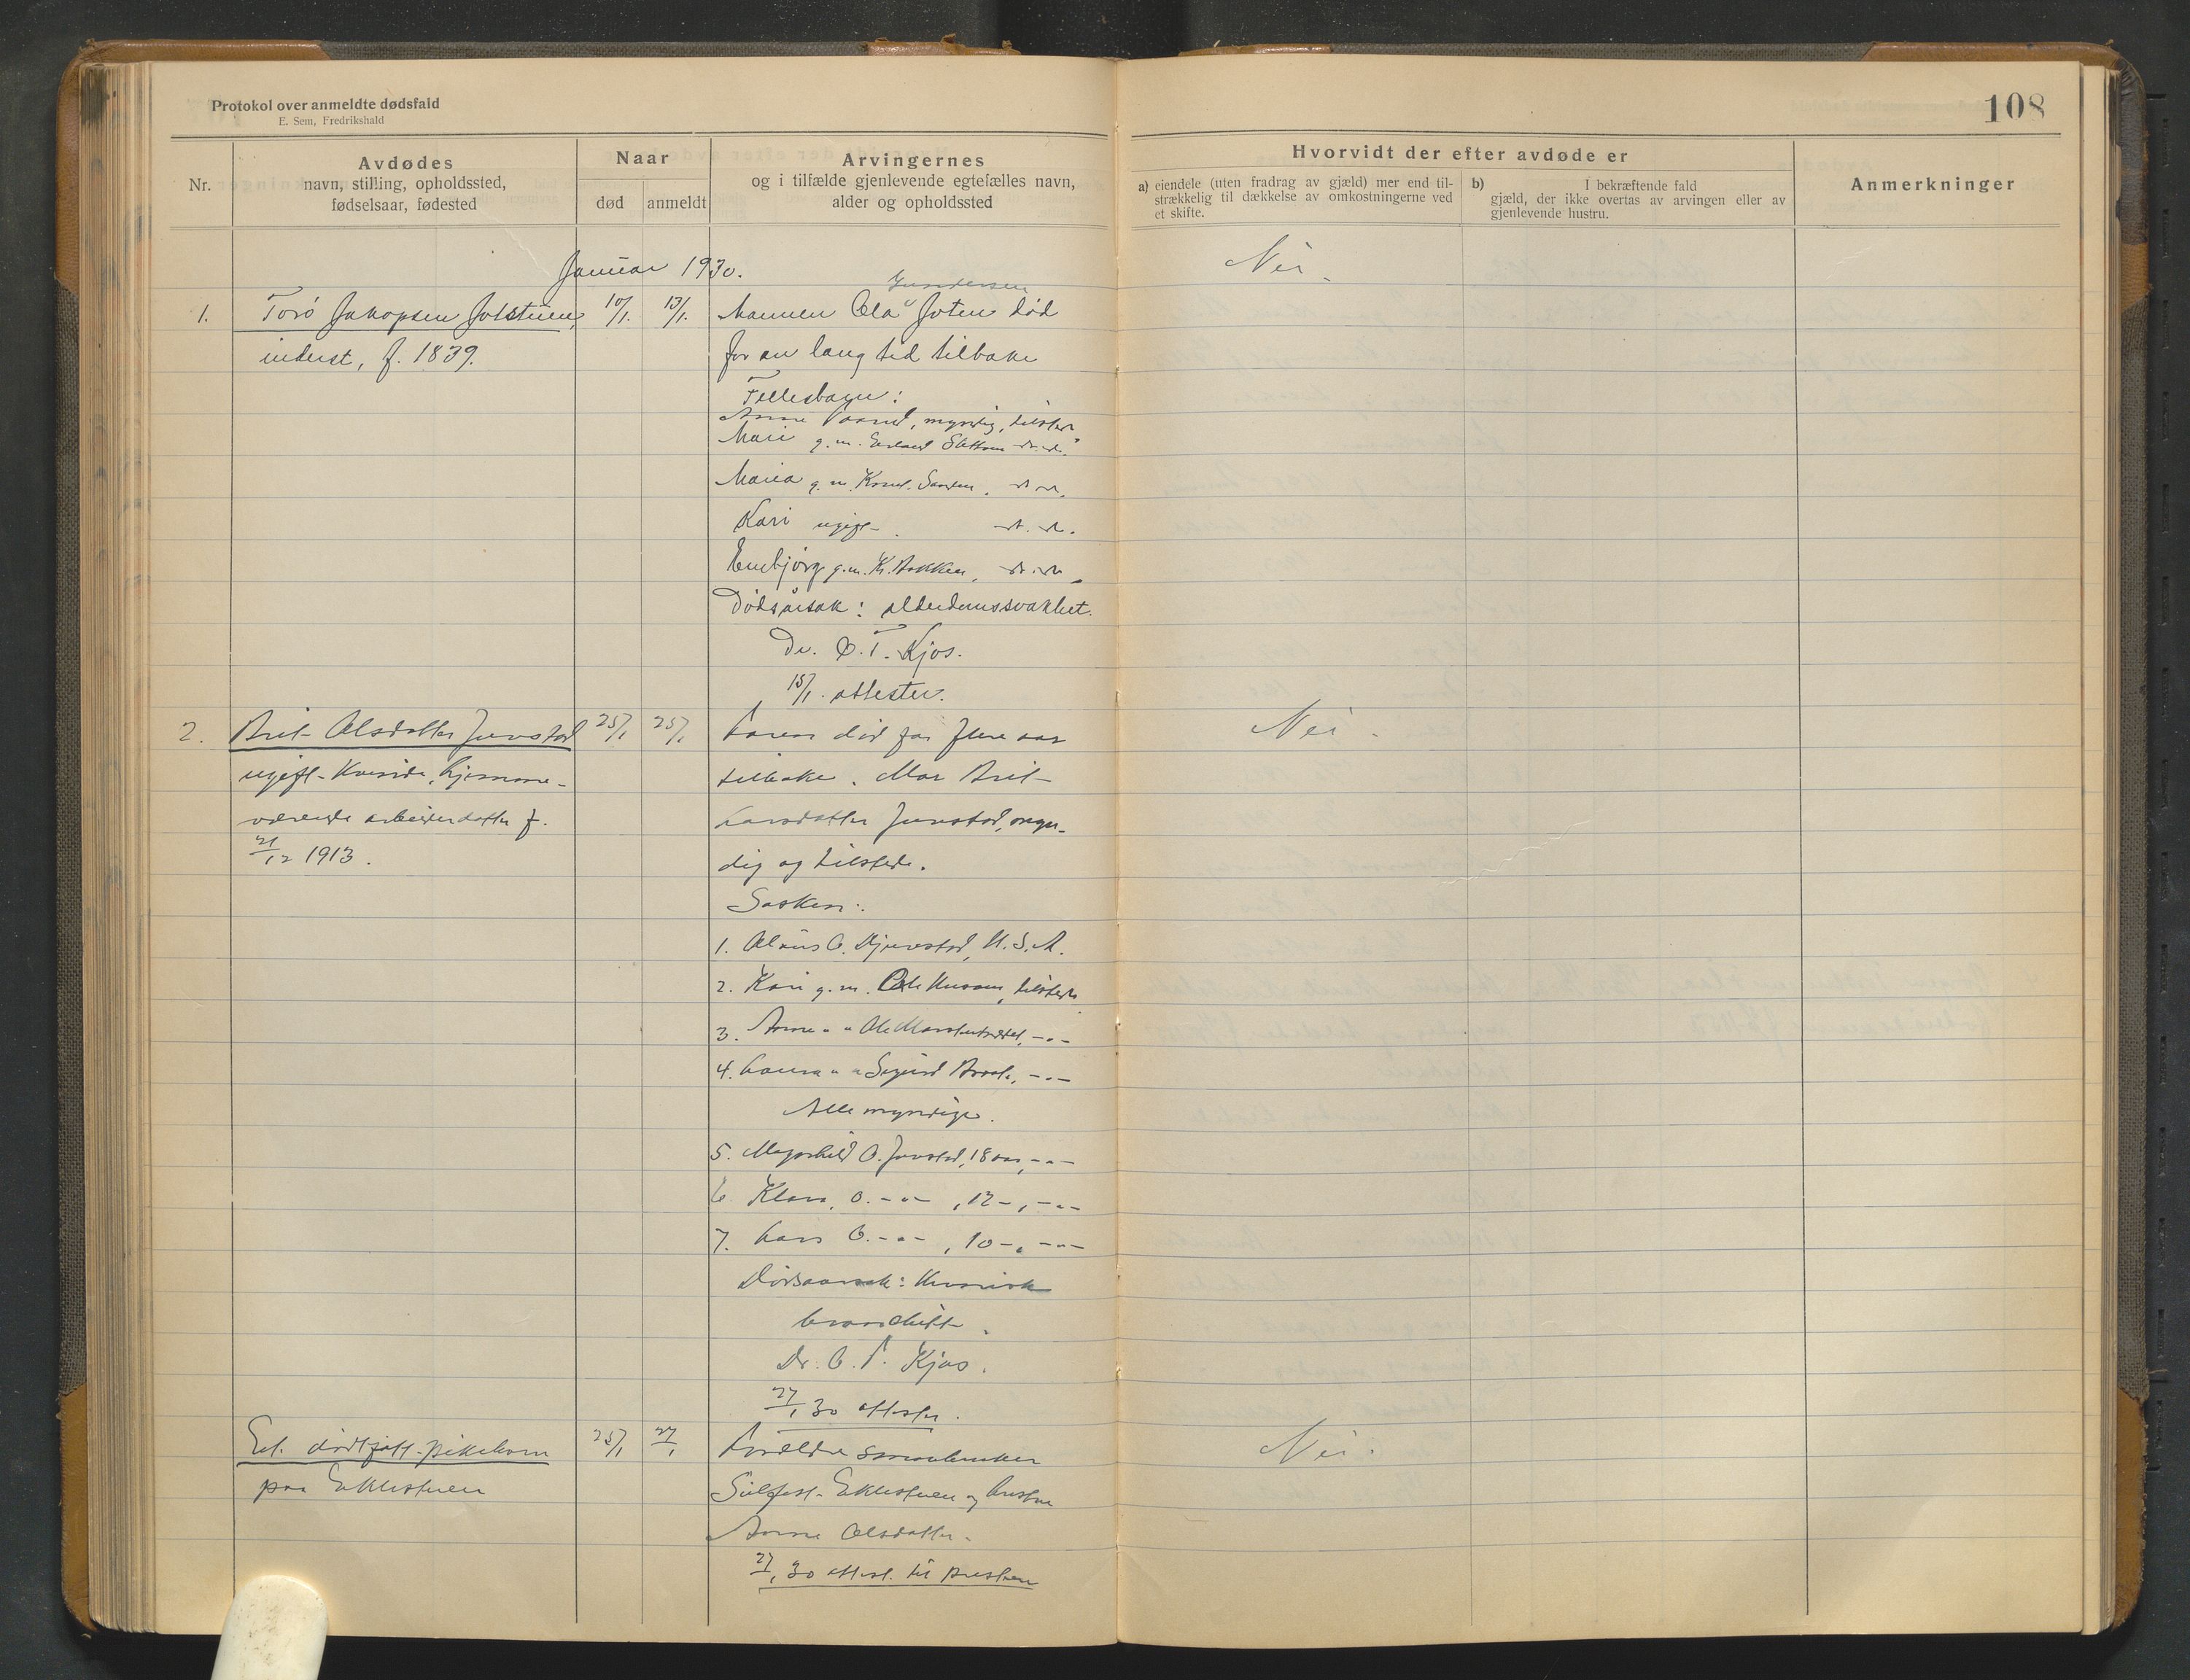 Protokol over anmeldte dødsfald
E. Sem, Fredrikshald
108
Nr.
Avdødes
navn, stilling, opholdssted,
fødselsaar, fødested
Naar
død
anmeldt
Arvingernes
og i tilfælde gjenlevende egtefælles navn,
alder og opholdssted
Hvorvidt der efter avdøde er
a) eiendele (uten fradrag av gjæld) mer end til-
strækkelig til dækkelse av omkostningerne ved
et skifte.
b) I bekræftende fald
gjæld, der ikke overtas av arvingen eller av
gjenlevende hustru.
Anmerkninger
Januar 1930.
Nei.
Gundersen
1. Toro Jakopsen 10/1. 13/1. Mannen Ola Joten død
inderst, f. 1839. for en lang tid tilbake
Fellesbarn:
Anne myndig, tilstede
Mari g. m. Erland
Maria g. m. Sanden.
Kari ugift
Embjørg g. m. K. Bakken,
Dødsårsak: alderdomssvakhet.
Dr. O. T. Kjos.
15/1. attester.
2. Brit Olsdatter Juvstad 25/1 25/1 Faren død for flere aar Nei.
ugift kvinde, hjemme- tilbake. Mor Brit
værende arbeiderdatter f. Larsdatter Juvstad, myn-
21/12 1913. dig og tilstede.
Søsken:
1. O. Djuvstad, U.S.A.
2. Kari g. m. Ole tilstede
3. Anne " " Ole -"-
4. Laura " " Sigurd -"-
Alle myndige.
5. Magnhild O. Juvstad, 18 aar, -"-
6. Klara, O. -"-, 12 -, -"-
7. Lars O. -"-, 10 -, -"-
Dødsaarsak: Kronisk
bronchitt.
Dr. O. T. Kjos.
27/1 30 attester.
Et dødfødt pikebarn 25/1 27/1 Foreldre smaabruker Nei.
paa Eklestuen Sylfest Eklestuen og hustru
Anne Olsdatter.
27/1 30 attest. til Presten